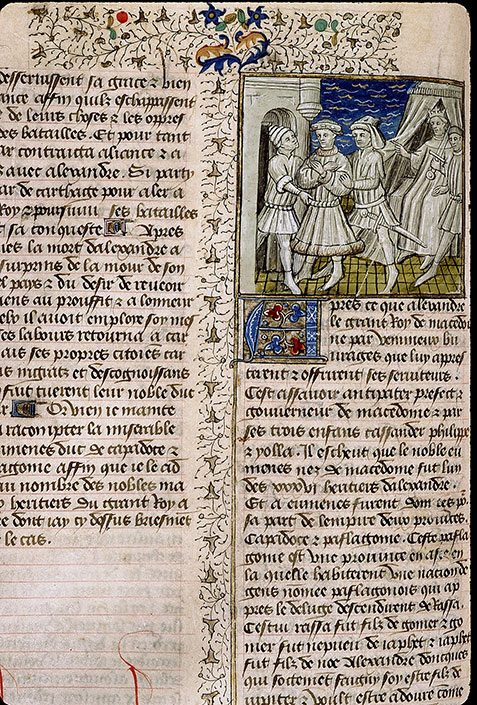 desservissent sa grace & bien
ance affin quilz eschapassent
de leurs choses & les oppres
des batailles. Et pour tant
ar contracta aliance & a
avec alexandre. Si party
ar de carthage pour aler a
Roy & poursuiui ses batailles
t sa conqueste Apres
mes la mort dalexandre a
surprins de la mour de son
el pays & du desir de reueoir
iens au prouffit & a lonneur
elz il auoit emploie son mes
ses labours retourna a car
ais ses propres citoiens car
ais ingratz et descognoissans
fait tuerent leur noble duc
ar Or vien ie maintenant
a racompter la miserable
umenes duc de capadoce &
lagonie affin que ie le ad
au nombre des nobles ma
heritiers du grant Roy a
ee dont iay cy dessus briefment
le cas.
Apres ce que alexandre
le grant Roy de macedoi
ne par venimeux bu
uraiges que luy apres
terent & offrirent ses seruiteurs.
Cest assauoir antipater prefect &
gouuerneur de macedome & par
ses trois enfans cassander philippe
& yolla. Il escheut que le noble eu
menes nez de macedome fut luy
des xxxvi heritiers dalexandre.
Et a eumenes furent donnees po
sa part de lempire deux prouinces.
Capadoce & paflagonie. Ceste pafla
gonie est vne prouince en asie en
la quelle habiterent vne nacion de
gens nomee paflagonois qui ap
pres le deluge descendirent de rassa.
Cestui rassa fut filz de gomer & go
mer fut nepueu de iaphet & iaphet
fut filz de noe Alexandre doncques
qui sottement faigny soy estre filz de
iupiter & voult estre adoure come